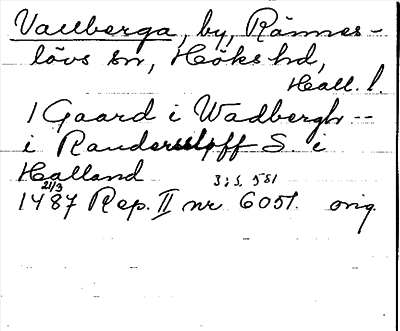 Vallberga, by, Rännes-
lövs sn, Höks hd,
Hall. l.
1 Gaard i Wadbergh --
i Randersløff S i
Halland
21/3
3:s. 581
1487 Rep. II nr 6051. orig.